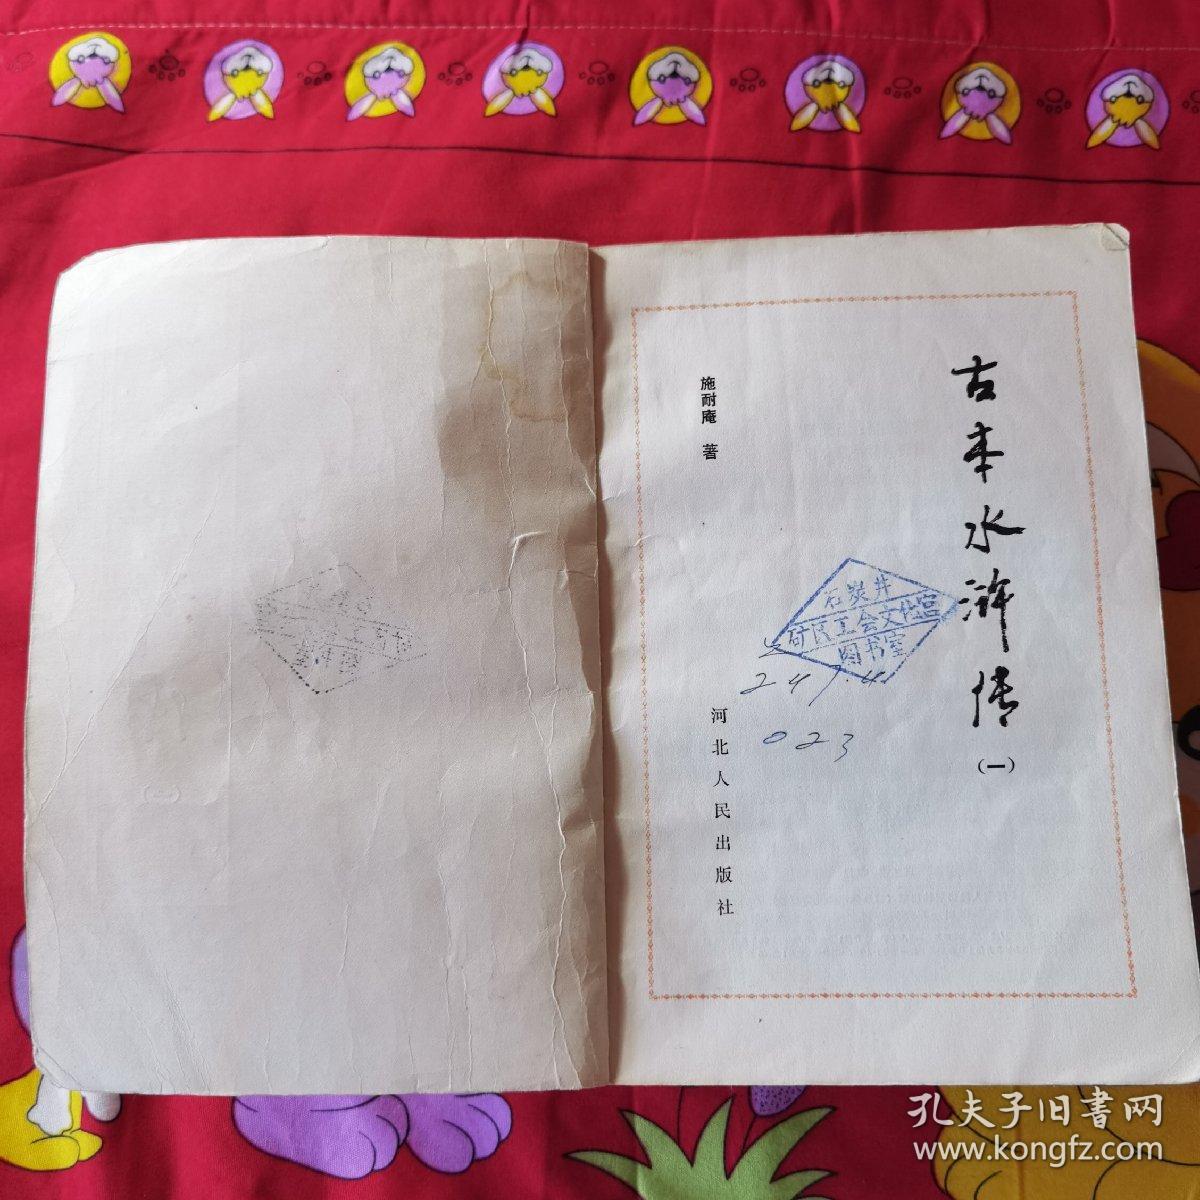 古本水浒传
（一）
施耐庵 著
石炭井
矿区工会文化宫
图书室
247.4
023
河北人民出版社
孔夫子旧书网
www.kongfz.com